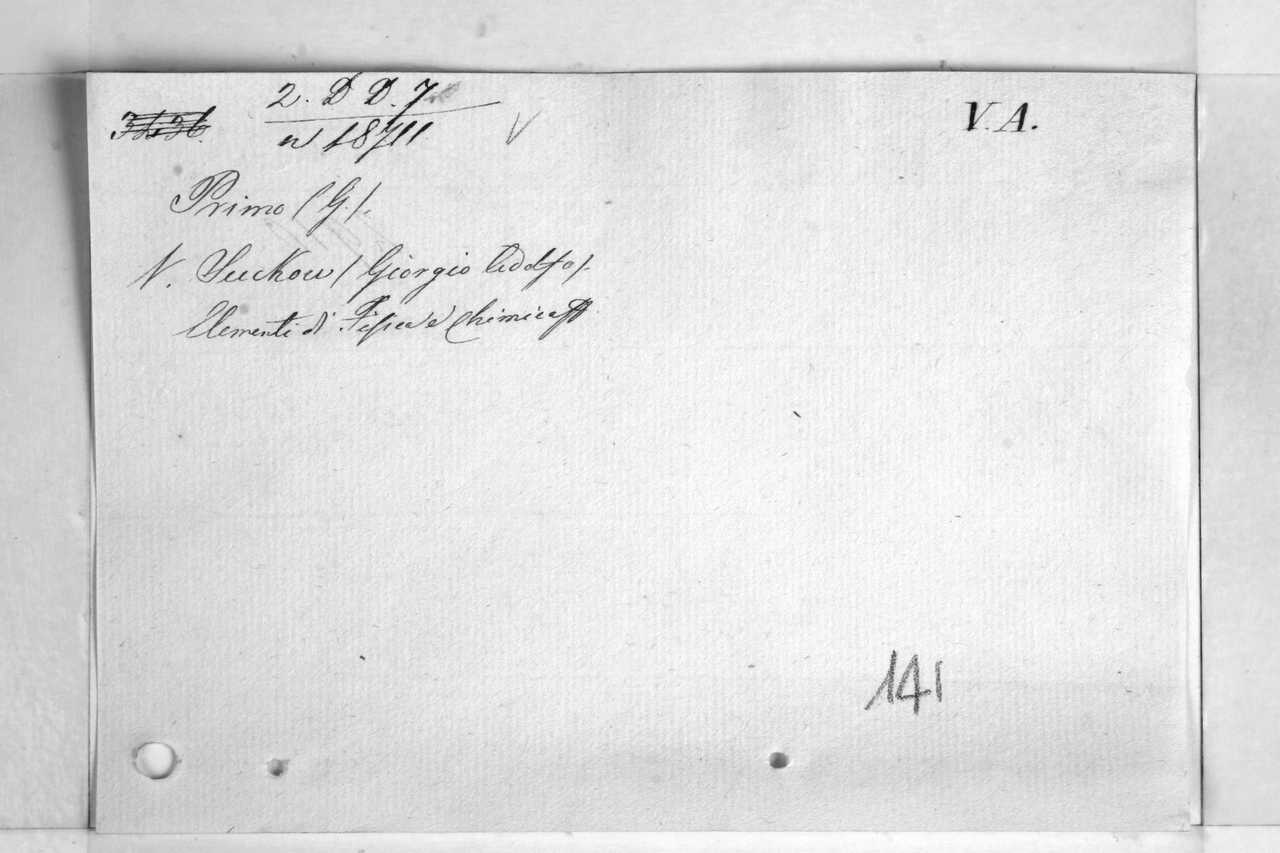 2. D D. 7
n 18711
V
V. A.
Primo (G.).
V. Suckow (Giorgio Adolfo).
Elementi di Fisica e Chimica
141